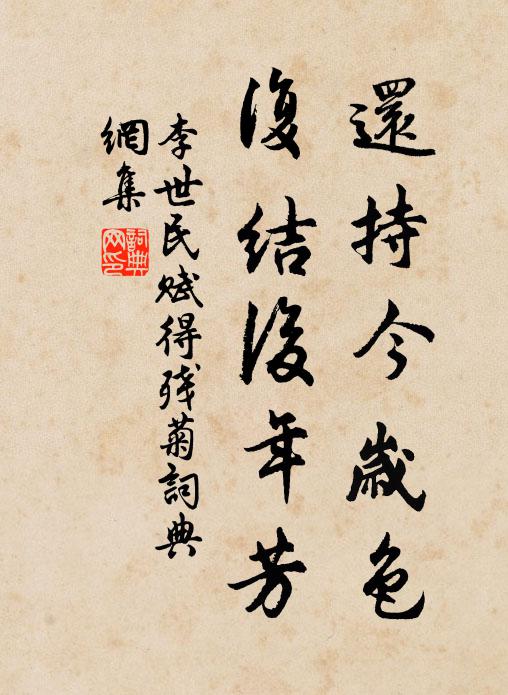 還持今歲色
復結後年芳
李世民賦得残菊詞典
網集
詞典
网印